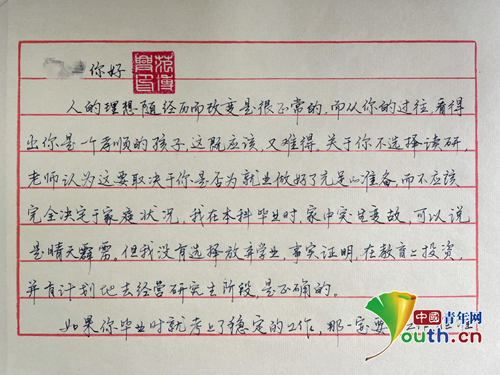 你好
人的理想随经历而改变是很正常的,而从你的过往,看得
出你是一个孝顺的孩子,这既应该,又难得,关于你不选择读研,
老师认为这要取决于你是否为就业做好了充足心准备,而不应该
完全决定于家庭状况,我在本科毕业时,家中突生变故,可以说
是晴天霹雳,但我没有选择放弃学业,事实证明,在教育上投资,
并有计划地去经营研究生阶段,是正确的。
如果你毕业时就考上了稳定的工作,那一定要
中國青年网
youth.cn